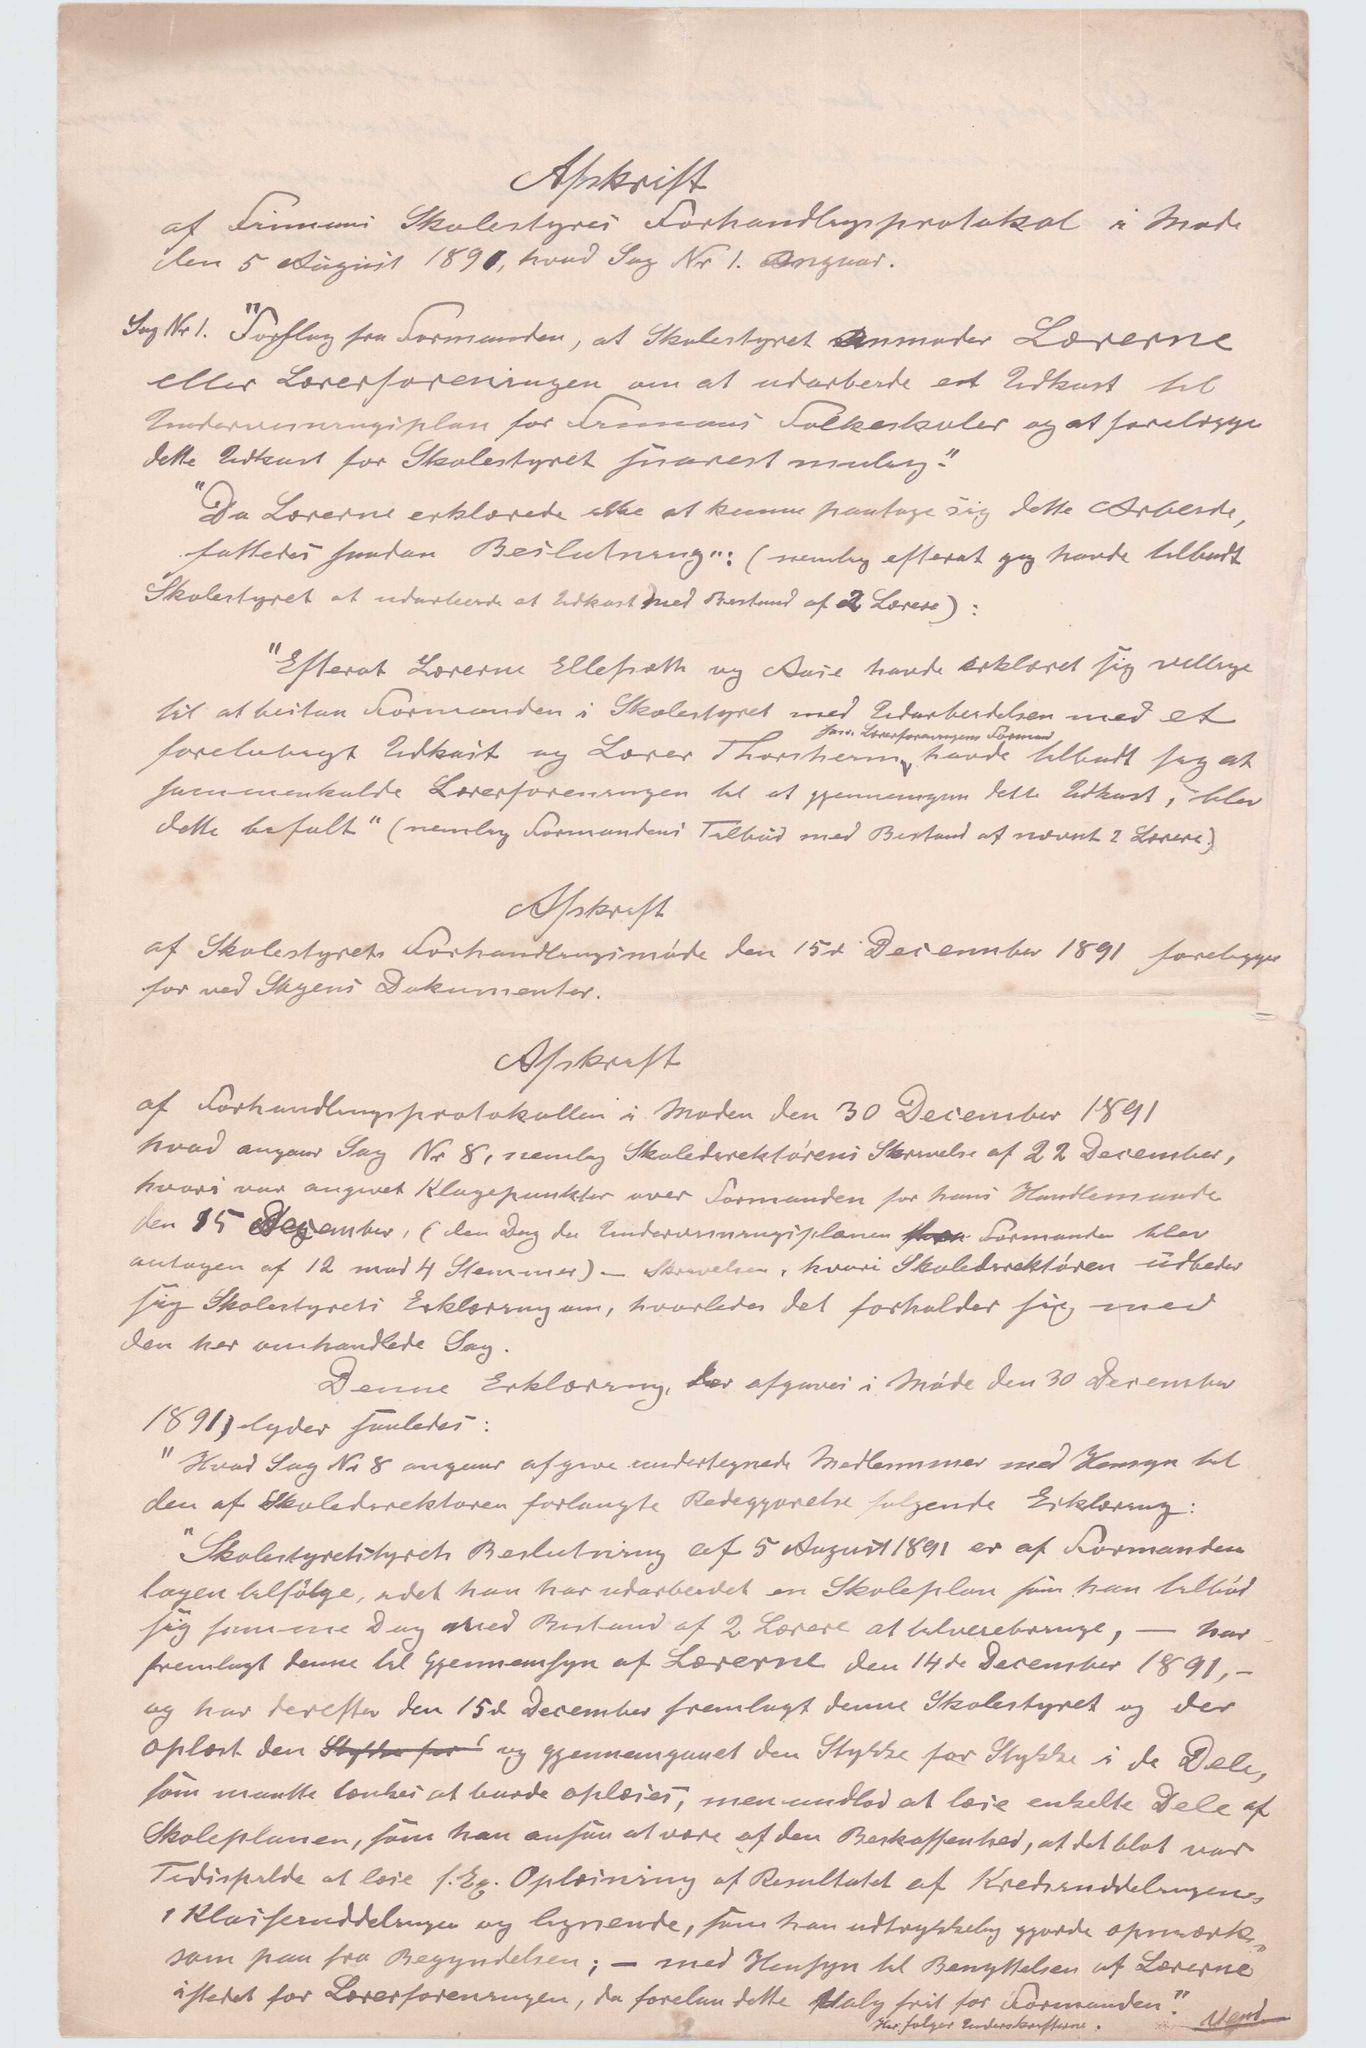 Afskrift
af Finnaas Skolestyres Forhandlingsprotokol i Møde
den 5 August 1891, hvad Sag Nr 1. angaar.
Sag Nr 1. "Forslag fra Formanden, at Skolestyret anmoder Lærerne
eller Lærerforeningen om at udarbeide et Udkast til
Undervisningsplan for Finnaas Folkeskoler og at forelægge
dette Udkast for Skolestyret snarest mulig."
"Da Lærerne erklærede ikke at kunne paatage sig dette Arbeide,
fattedes saadan Beslutning": (nemlig efterat jeg havde tilbudt
Skolestyret at udarbeide et Udkast med Bistand af 2 Lærere):
"Efterat Lærerne Ellefsæth og Aase havde erklæret sig villige
til at bistaa Formanden i Skolestyret med Udarbeidelsen med et
foreløbigt Udkast og Lærer Thorsheim, som Lærerforeningens Formand havde tilbudt sig at
sammenkalde Lærerforeningen til at gjennemgaa dette Udkast, blev
dette bifalt" (nemlig Formandens Tilbud med Bistand af nævnt 2 Lærere)
Afskrift
af Skolestyrets Forhandlingsmøde den 15de December 1891 forelægges
for ved Sagens Dokumenter.
Afskrift
af Forhandlingsprotokollen i Mødet den 30 December 1891
hvad angaar Sag Nr 8, nemlig Skoledirektørens Skrivelse af 22 December,
hvori var angivet Klagepunkter over Formanden for hans Handlemaade
den 15 December, (den Dag da Undervisningsplanen Formanden blev
antagen af 12 mod 4 Stemmer) – Skrivelsen, hvori Skoledirektøren udbeder
sig Skolestyrets Erklæring om, hvorledes det forholder sig med
den her omhandlede Sag.
Denne Erklæring, der afgaves i Møde den 30 December
1891, lyder saaledes:
"Hvad Sag Nr 8 angaar afgive undertegnede Medlemmer med Hensyn til
den af Skoledirektøren forlangte Redegjørelse følgende Erklæring:
"Skolestyretstyrets Beslutning af 5 August 1891 er af Formanden
tagen tilfølge, idet han har udarbeidet en Skoleplan som han tilbød
sig samme Dag med Bistand af 2 Lærere at tilveiebringe, – har
fremlagt denne til Gjennemsyn af Lærerne den 14de December 1891, –
og har derefter den 15de December fremlagt denne Skolestyret og der
oplæst den Stykke for og gjennemgaaet den Stykke for Stykke i de Dele,
som maatte tænkes at burde oplæses, men undlod at læse enkelte Dele af
Skoleplanen, som han ansaa at være af den Beskaffenhed, at det blot var
Tidsspilde at læse f. Ex. Oplæsning af Resultatet af Kredsinddelingen,
i Klasseinddelingen og lignende, som han udtrykkelig gjorde opmærk-
som paa fra Begyndelsen; – med Hensyn til Benyttelsen af Lærerne
istedet for Lærerforeningen, da forelaa dette Valg frit for Formanden."
Her følger Underskrifterne. Vend